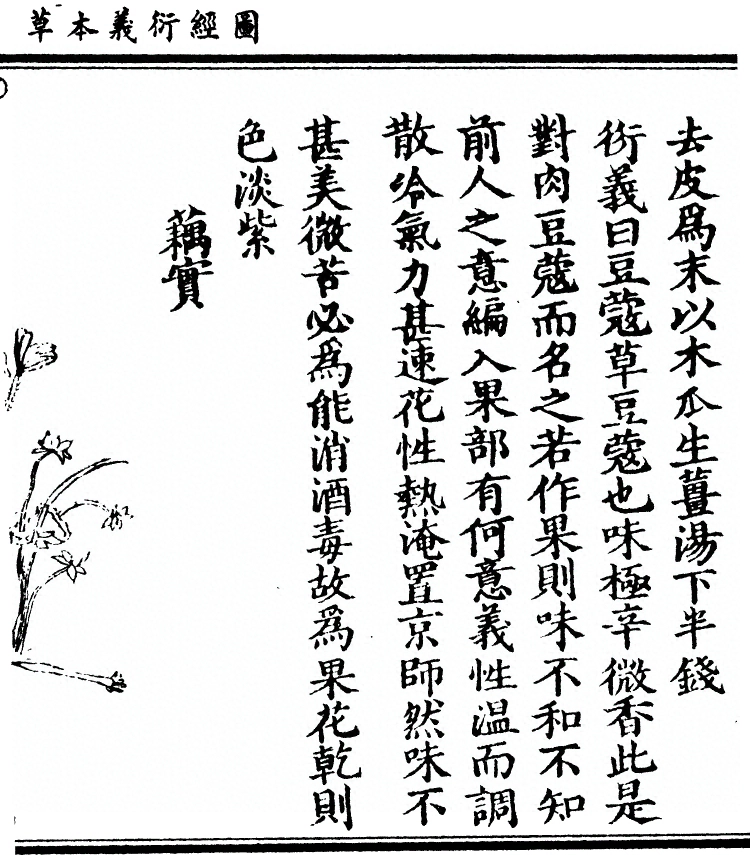 圖經衍義本草
去皮爲末以木瓜生薑湯下半錢
衍義曰豆蔻草豆蔻也味極辛微香此是
對肉豆蔻而名之若作果則味不和不知
前人之意編入果部有何意義性温而調
散冷氣力甚速花性熱淹置京師然味不
甚美微苦必爲能消酒毒故爲果花乾則
色淡紫
藕實